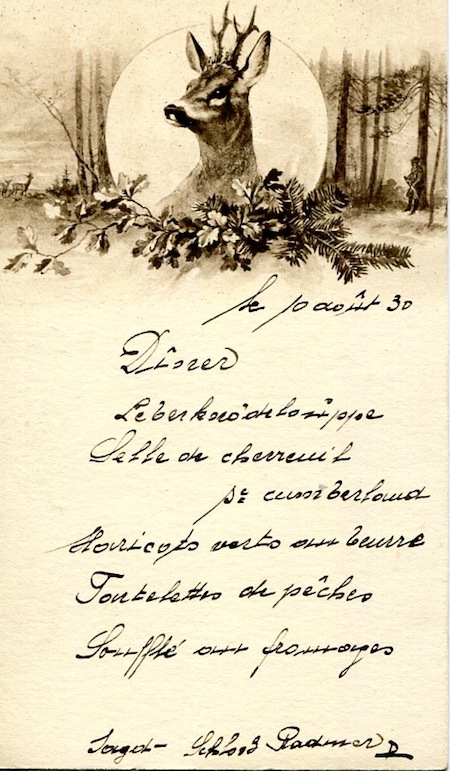 le 9 août 30
Dîner
Leberknödelsuppe
Selle de chevreuil
sce cumberland
Haricots verts au beurre
Tartelettes de pêches
Soufflé au fromages
Jagd- Schloß Radmer